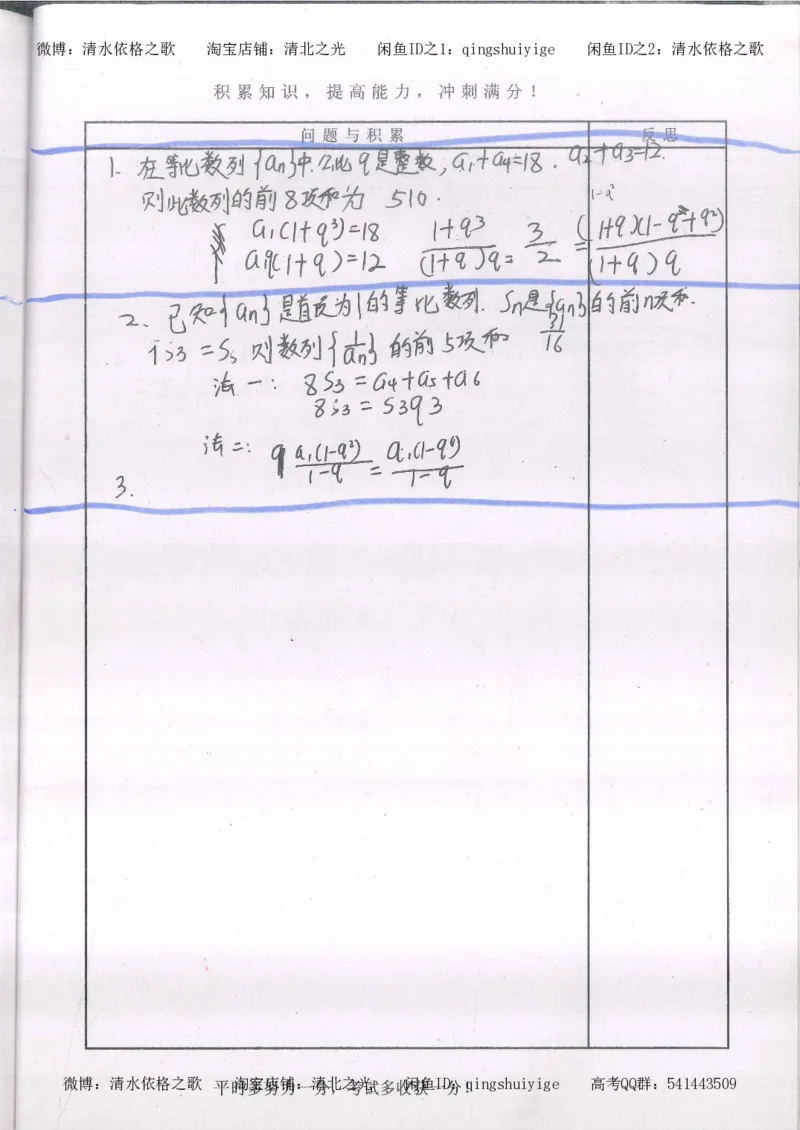 微博：清水依格之歌 淘宝店铺：清北之光 闲鱼ID之1：qingshuiyige 闲鱼ID之2：清水依格之歌
积累知识，提高能力，冲刺满分！
问题与积累 反思
1. 在等比数列{an}中.公比q是整数,a₁+a₄=18. a₂+a₃=12.
则此数列的前8项和为 510.
a₁(1+q³)=18
a₁q(1+q)=12
1+q³/(1+q)q = 3/2 = (1+q)(1-q+q²)/(1+q)q
2. 已知{an}是首项为1的等比数列. Sn是{an}的前n项和.
9S3=S6 则数列{1/an}的前5项和 31/16
法一: 8S3=a4+a5+a6
8S3=S3q3
法二: 9 a₁(1-q³)/1-q = a₁(1-q⁶)/1-q
3.
微博：清水依格之歌 淘宝店铺：清北之光 闲鱼ID：qingshuiyige 高考QQ群：541443509
平时多努力一分，考试多收获一分！